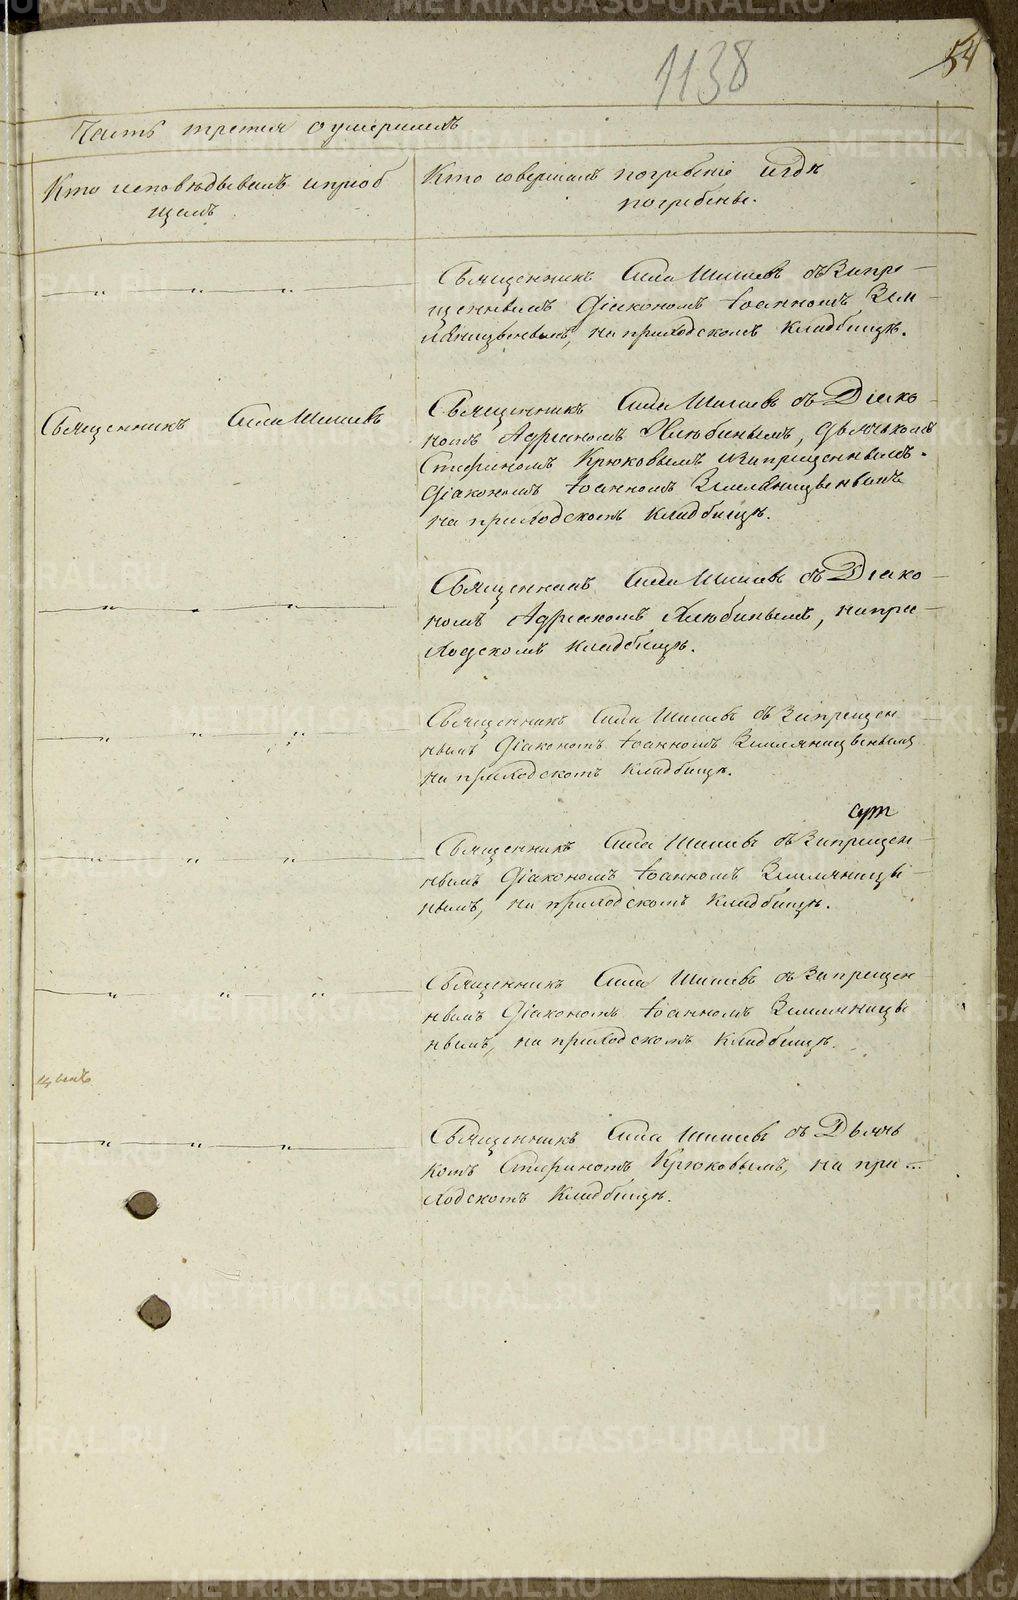 1138
54
Часть третія о умершихъ
Кто исповѣдывалъ и пріоб
щалъ
Кто совершалъ погребеніе и гдѣ
погребены.
Священникъ Сила Шишевъ съ Запре
щеннымъ Діакономъ Іоанномъ Зем
ляницынымъ, на приходскомъ кладбищѣ.
Священникъ Сила Шишевъ
Священникъ Сила Шишевъ съ Діако
номъ Адріаномъ Хлюбинымъ, дьячкомъ
Стефаномъ Крюковымъ и запрещеннымъ
Діакономъ Іоанномъ Земляницынымъ
на приходскомъ кладбищѣ.
Священникъ Сила Шишевъ съ Діако
номъ Адріаномъ Хлюбинымъ, на при
ходскомъ кладбищѣ.
Священникъ Сила Шишевъ съ Запрещен
нымъ Діакономъ Іоанномъ Земляницынымъ
на приходскомъ кладбищѣ.
Священникъ Сила Шишевъ съ Запрещен
нымъ Діакономъ Іоанномъ Земляницы
нымъ, на приходскомъ кладбищѣ.
Священникъ Сила Шишевъ съ Запрещен
нымъ Діакономъ Іоанномъ Земляницы
нымъ, на приходскомъ кладбищѣ.
Священникъ Сила Шишевъ съ Дьяч
комъ Стефаномъ Крюковымъ, на при
ходскомъ кладбищѣ.
METRIKI.GASO-URAL.RU